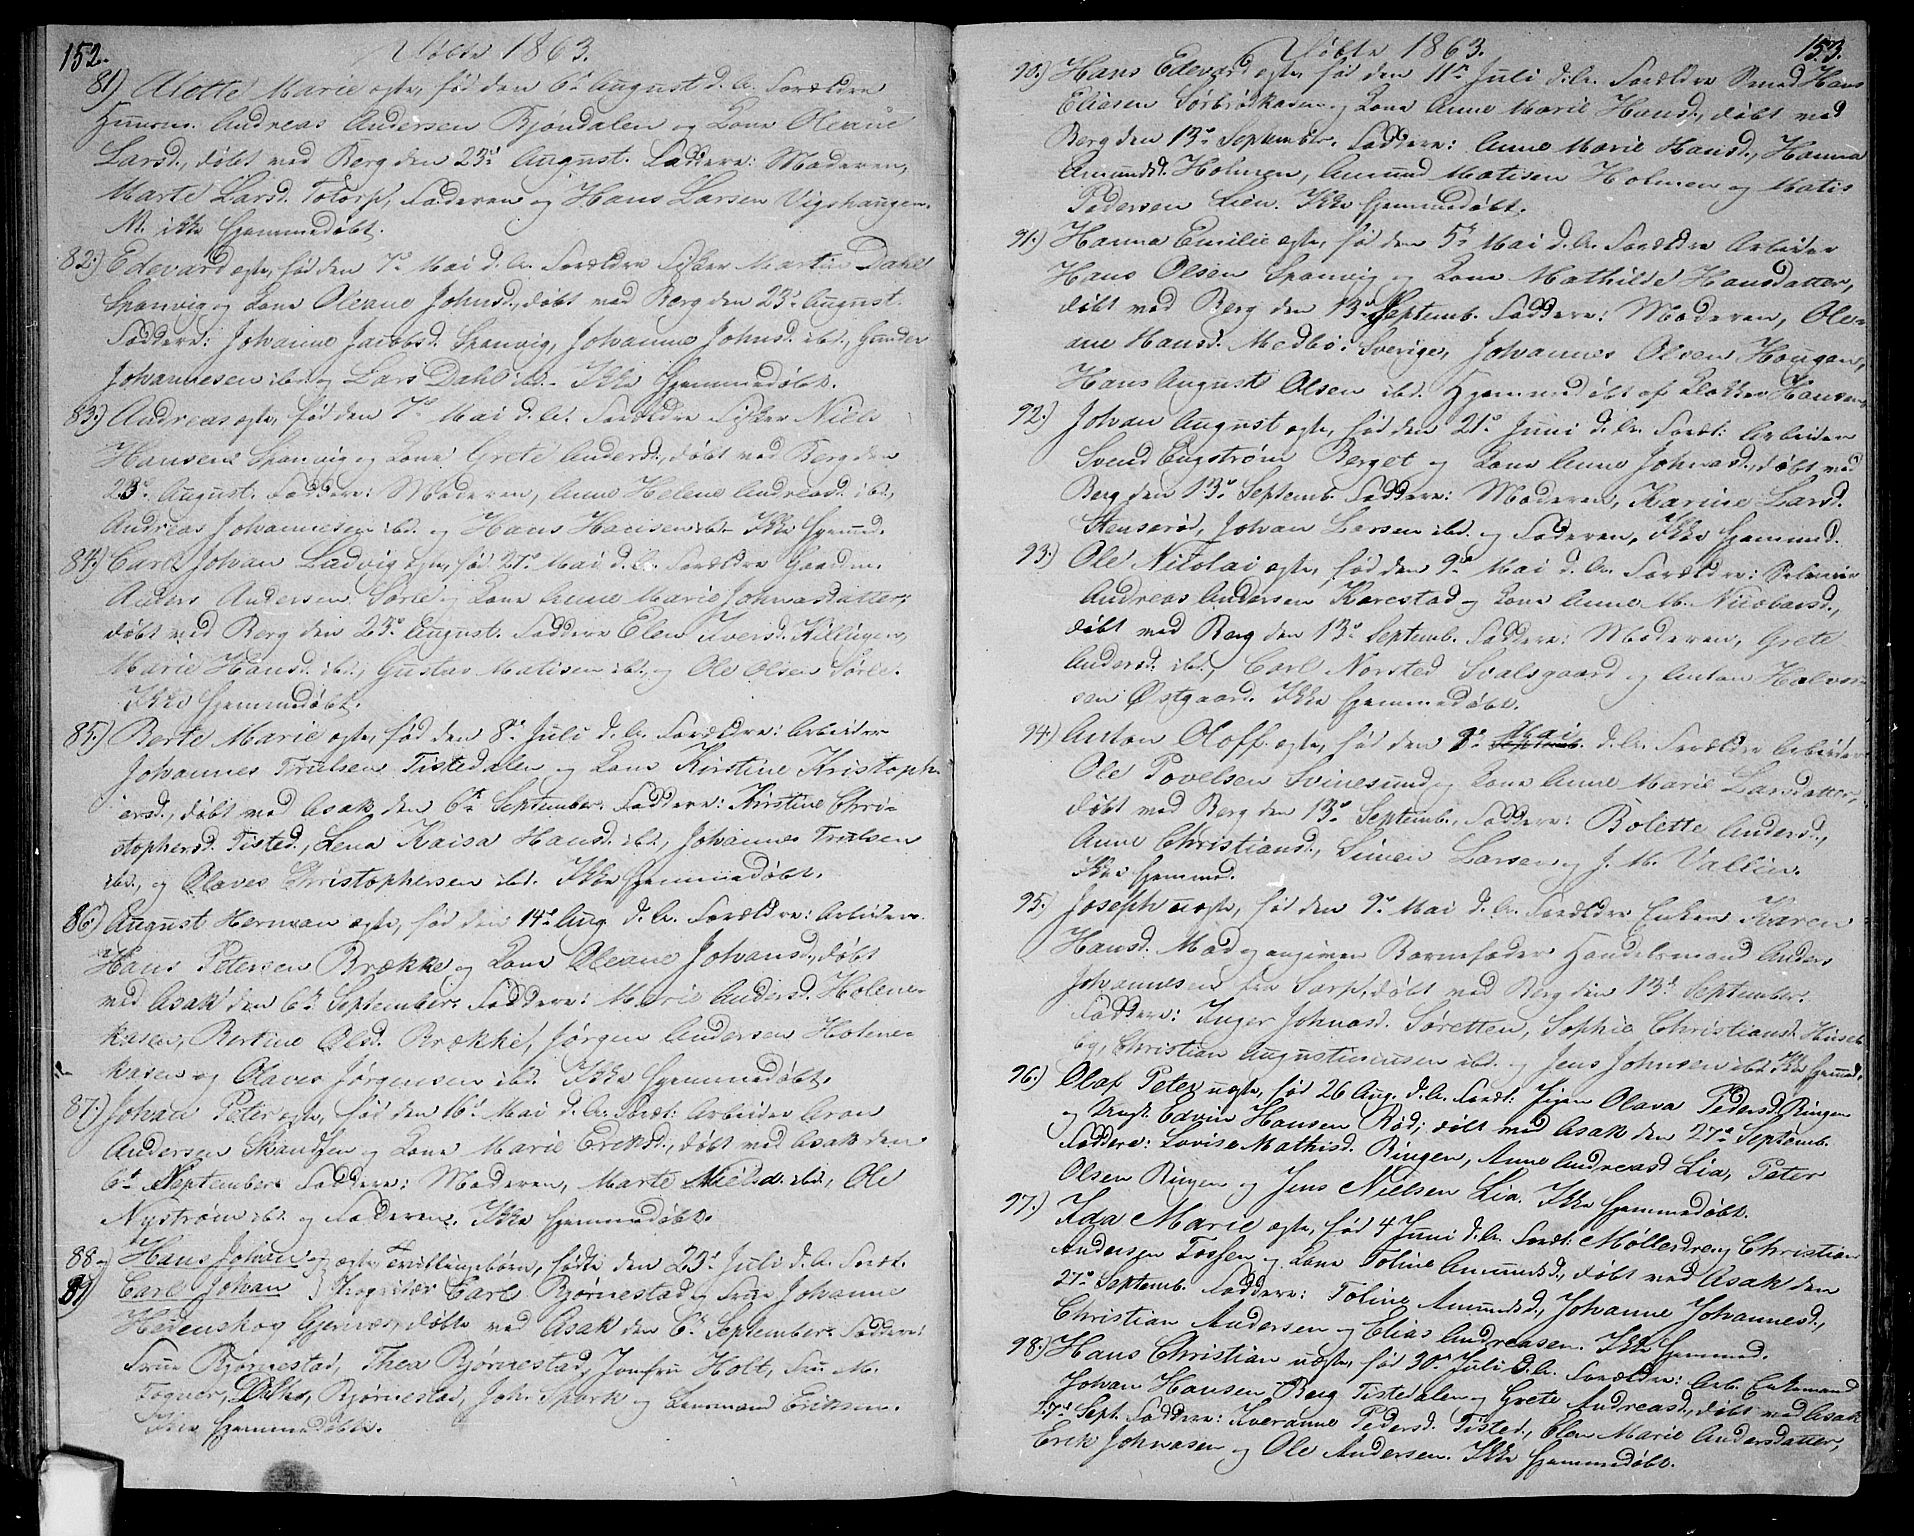 152.
Døbte 1863.
81) Alette Marie ægte, fød den 6te August d. A. Forældre
Huusm. Andreas Andersen Bjøndalen og Kone Oleane
Larsd., døbt ved Berg den 23d August. Faddere: Moderen,
Marte Larsd. Totorp, Faderen og Hans Larsen Vigshaugen.
N. ikke hjemmedøbt.
82.) Edevard ægte, fød den 7de Mai d. A. Forældre Fisker Martin Dahl
Sponvig og Kone Oleane Johnsd., døbt ved Berg den 23d August.
Faddere: Johanne Jacobsd. Sponvig, Johanne Johnsd. ibd., Gunder
Johannesen ibd. og Lars Dahl ibd. Ikke hjemmedøbt.
83.) Andreas ægte, fød den 7de Mai d. A. Forældre Fisker Niels
Hansen Sponvig og Kone Grete Andersd., døbt ved Berg den
23d August. Faddere: Moderen, Anne Helene Andreasd. ibd.,
Andreas Johannesen ibd. og Hans Hansen ibd. Ikke hjemmed.
84.) Carl Johan Ludvig ægte, fød 27de Mai d. A. Forældre Gaardm.
Anders Andersen Sørle og Kone Anne Marie Johnasdatter,
døbt ved Berg den 23d August. Faddere Elen Iversd. Killingen,
Marie Hansd. ibd., Gustav Matisen ibd. og Ole Olsen Sørle.
Ikke hjemmedøbt.
85.) Berte Marie ægte, fød den 8de Juli d. A. Forældre: Arbeider
Johannes Truelsen Tistedalen og Kone Kirstine Kristoph
ersd., døbt ved Asak den 6te September. Faddere: Kirstine Chri-
stophersd. Tisted., Lena Kaisa Hansd. ibd., Johannes Truelsen
ibd., og Olaves Christophersen ibd. Ikke hjemmedøbt.
86.) August Herman ægte, fød den 14de Aug. d. A. Forældre: Arbeider
Hans Petersen Brække og Kone Oleane Johansd., døbt
ved Asak den 6te September. Faddere: Marie Andersd. Holene-
kasen, Bertine Olsd. Brække, Jørgen Andersen Holene-
kasen og Olaves Jørgensen ibd. Ikke hjemmedøbt.
87.) Johan Peter ægte, fød den 16de Mai d. A. Foræl: Arbeider Aron
Andersen Skandsen og Kone Marie Eriksd., døbt ved Asak den
6te September. Faddere: Moderen, Marte Nielsd. ibd., Ole
Nystrøm ibd. og Faderen. Ikke hjemmedøbt.
88 og Hans Johan og ægte Tvillingebørn, fødte den 23d Juli d. A. Foræl.
89) Carl Johan Carl Bjørnestad og Frue Johanne
Hedenskog Gjernæs, døbte ved Asak den 6te September. Faddere:
Frue Bjørnestad, Thea Bjørnestad, Jomfru Holt, Fru M.
Fogner, Bjørnestad, Joh. Spork og Lensmand Eriksen.
Ikke hjemmedøbte.
153.
Døbte 1863.
90.) Hans Edevard ægte, fød den 11te Juli d. A. Forældre Smed Hans
Eliasen Sørbrødkasen og Kone Anne Marie Hansd., døbt ved
Berg den 13de September. Faddere: Anne Marie Hansd., Hanna
Amundsd. Holmen, Amund Matisen Holmen og Matis
Pedersen Lien. Ikke hjemmedøbt.
91.) Hanna Emilie ægte, fød den 5te Mai d. A. Forældre Arbeider
Hans Olsen Sponvig og Kone Mathilde Hansdatter,
døbt ved Berg den 13de Septemb. Faddere: Moderen, Ole-
ane Hansd. Medbø i Sverige, Johannes Olsen Hougen,
Hans August Olsen ibd. Hjemmedøbt af Klokker Hansen.
92.) Johan August ægte, fød den 21de Juni d. A. Foræl: Arbeider
Svend Engstrøm Berget og Kone Anne Johnasd., døbt ved
Berg den 13de Septemb. Faddere: Moderen, Karine Larsd.
Stenserød, Johan Larsen ibd. og Faderen. Ikke hjemmed.
93.) Ole Nicolai ægte, fød den 9de Mai d. A. Forældre: Selveier
Andreas Andersen Karestad og Kone Anne M. Nicolaisd.,
døbt ved Berg den 13de Septemb. Faddere: Moderen, Grete
Andersd. ibd., Carl Norsted Svalsgaard og Anton Halvor-
sen Østgaard. Ikke hjemmedøbt.
94.) Anton Oloff ægte, fød den 9de Mai Septemb. d. A. Forældre Arbeider
Ole Povelsen Svinesund og Kone Anne Marie Larsdatter,
døbt ved Berg den 13de Septemb. Faddere: Bolette Andersd.,
Anne Christiansd., Simen Larsen og J. M. Vallin.
Ikke hjemmed.
95.) Joseph uægte, fød den 9de Mai d. A. Forældre Enken Karen
Hansd. Mad og angiven Barnefader Handelsmand Anders
Johannesen fra Sarp, døbt ved Berg den 13de September.
Faddere: Inger Johnasd. Søretten, Sophie Christiansd. Huseb
og, Christian Augustinussen ibd. og Jens Johnsen ibd. Ikke hjemmed.
96.) Olaf Peter uægte, fød 26 Aug. d. A. Foræl: Pigen Olava Pedersd. Ringen
og Ungk. Edvin Hansen Rød; døbt ved Asak den 27de Septemb.
Faddere: Lovise Mathisd. Ringen, Anne Andreasd. Lia, Peter
Olsen Ringen og Jens Nielsen Lia. Ikke hjemmedøbt.
97.) Ida Marie ægte, fød 4 Juni d. A. Foræl: Møllerdreng Christian
Andersen Fossen og Kone Toline Amundsd., døbt ved Asak den
27de Septemb. Faddere: Toline Amundsd., Johanne Johannesd.,
Christian Andersen og Elias Andreasen. Ikke hjemmed.
98.) Hans Christian uægte, fød 30de Juli d. A. Forældre: Arb. Enkemand
Johan Hansen Berg Tistedalen og Grete Andreasd., døbt ved Asak
27de Sept. Faddere: Iveranne Pedersd. Tisted., Elen Marie Andersdatter,
Erik Johnasen og Ole Andersen. Ikke hjemmedøbt.